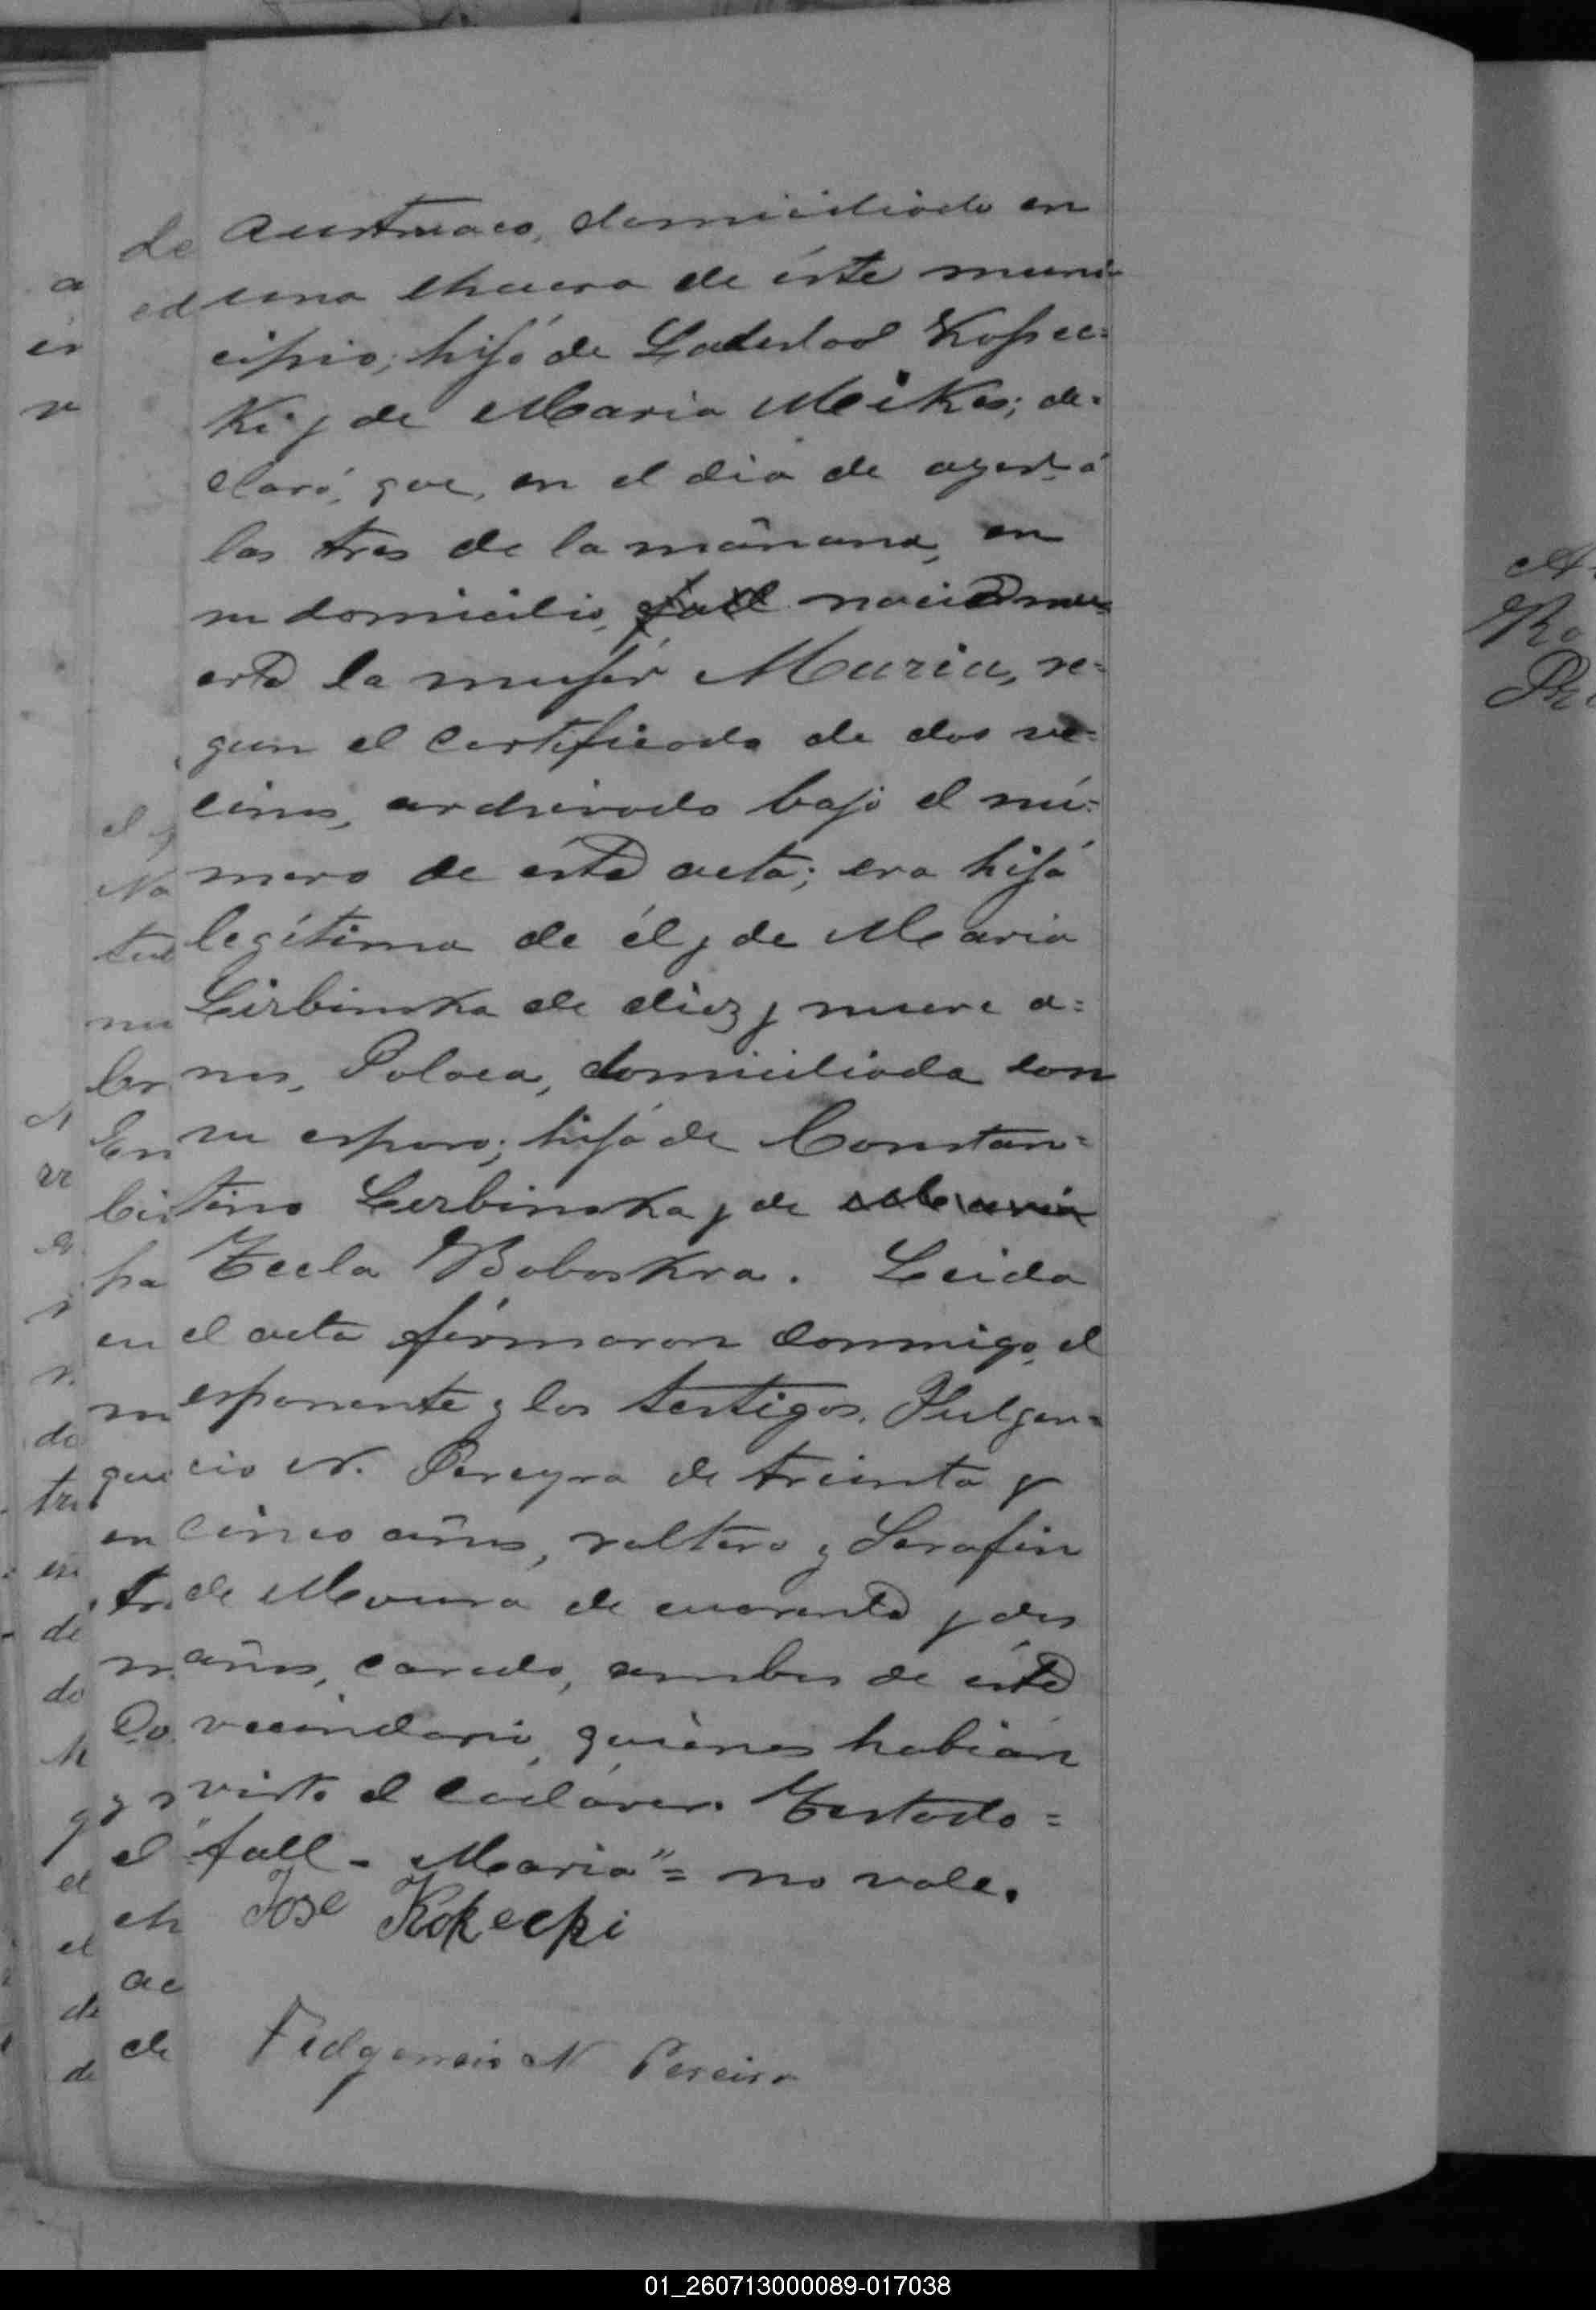 Austriaco, domiciliado en
una chacra de éste muni-
cipio; hijo de Ladislao Kopec=
ki y de Maria Meikas; de=
claró, que, en el dia de ayer á
las tres de la mañana, en
su domicilio, fall nació mu=
erta la mujer Maria, se=
gun el certificado de dos ve=
cinos, archivado bajo el nú=
mero de ésta acta; era hija
legítima de él y de Maria
Lirbinska de diez y nueve a=
ños, Polaca, domiciliada con
su esposo; hija de Constan=
tino Lerbinska y de Maria
Tecla Boboskra. Leida
el acta firmaron conmigo, el
esponente y los testigos, Fulgen=
cio N. Pereyra de treinta y
cinco años, soltero y Serafin
de Moura de cuarenta y dos
años, casado, ambos de ésta
vecindario, quienes habian
visto el cadáver. Testado=
"fall - Maria"= no vale.
José Kopecki
Fulgencio N Pereira
01_260713000089-017038